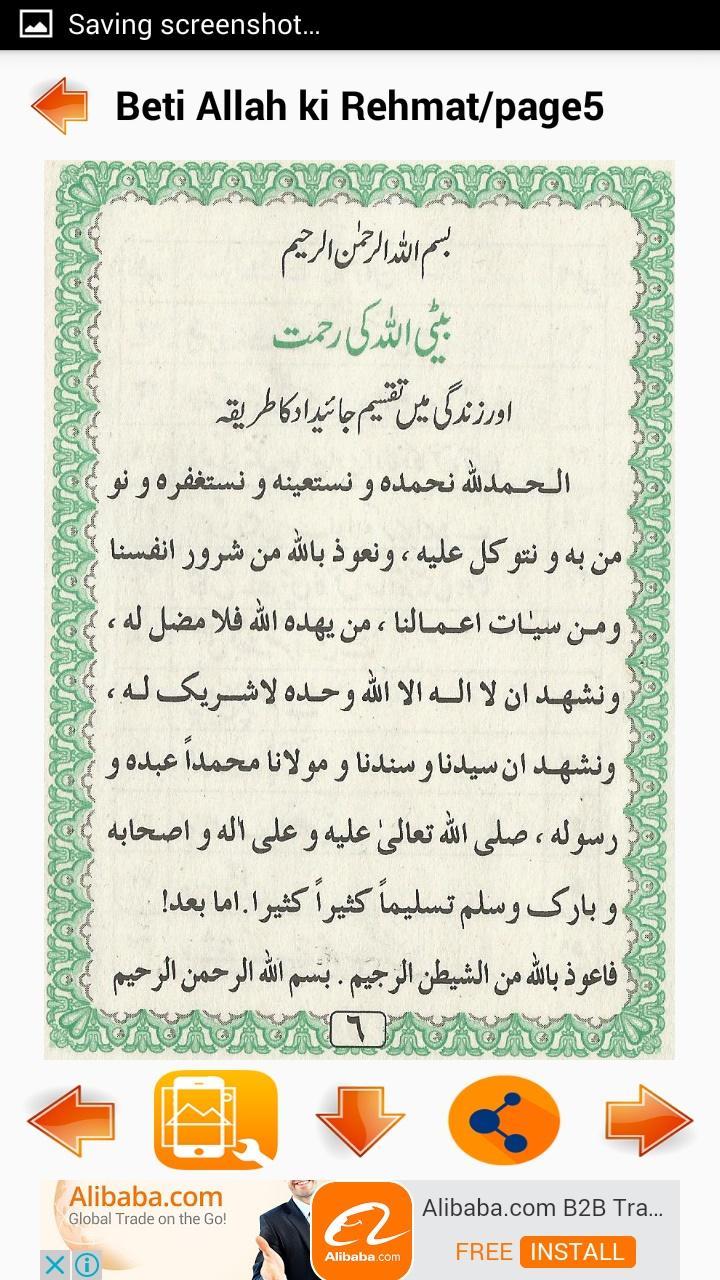 Saving screenshot...
Beti Allah ki Rehmat/page5
بسم اللہ الرحمٰن الرحیم
بیٹی اللہ کی رحمت
اور زندگی میں تقسیم جائیداد کا طریقہ
الـحـمدلله نحمده و نستعينه و نستغفره و نو
من به و نتو كل عليه ، ونعوذ بالله من شرور انفسنا
ومـن سيـٰات اعـمـالنا ، من يهده الله فلا مضل له ،
ونشهـد ان لا الـه الا الله وحـده لاشـريک لـه ،
ونشهـد ان سيدنا و سندنا و مولانا محمداً عبده و
رسوله ، صلى الله تعالىٰ عليه و على اٰله و اصحابه
و بارک وسلم تسليماً كثيراً كثيرا. اما بعد!
فاعوذ بالله من الشيطن الرجيم . بسم الله الرحمن الرحيم
٦
Alibaba.com
Global Trade on the Go!
Alibaba.com
Alibaba.com B2B Tra...
FREE INSTALL